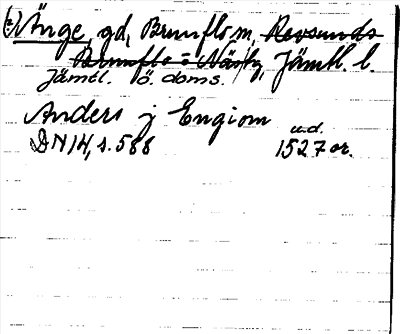 (2) Änge, gd, Brunflo sn, Revsunds
Brunflo o Näs tg, Jämtl. l.
Jämtl. ö. doms.
Anders j Engiom
u.d.
DN 14, s. 588 1527 or.